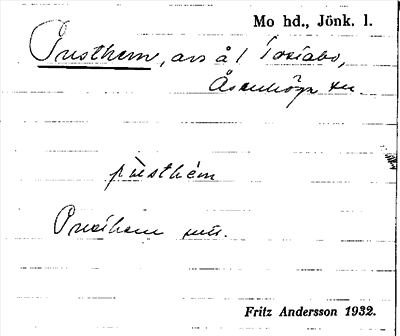 Mo hd., Jönk. l.
Prusthem, avs å 1 Tostabo,
Åsenhöga sn
prùsthém
Prusthem
Fritz Andersson 1932.